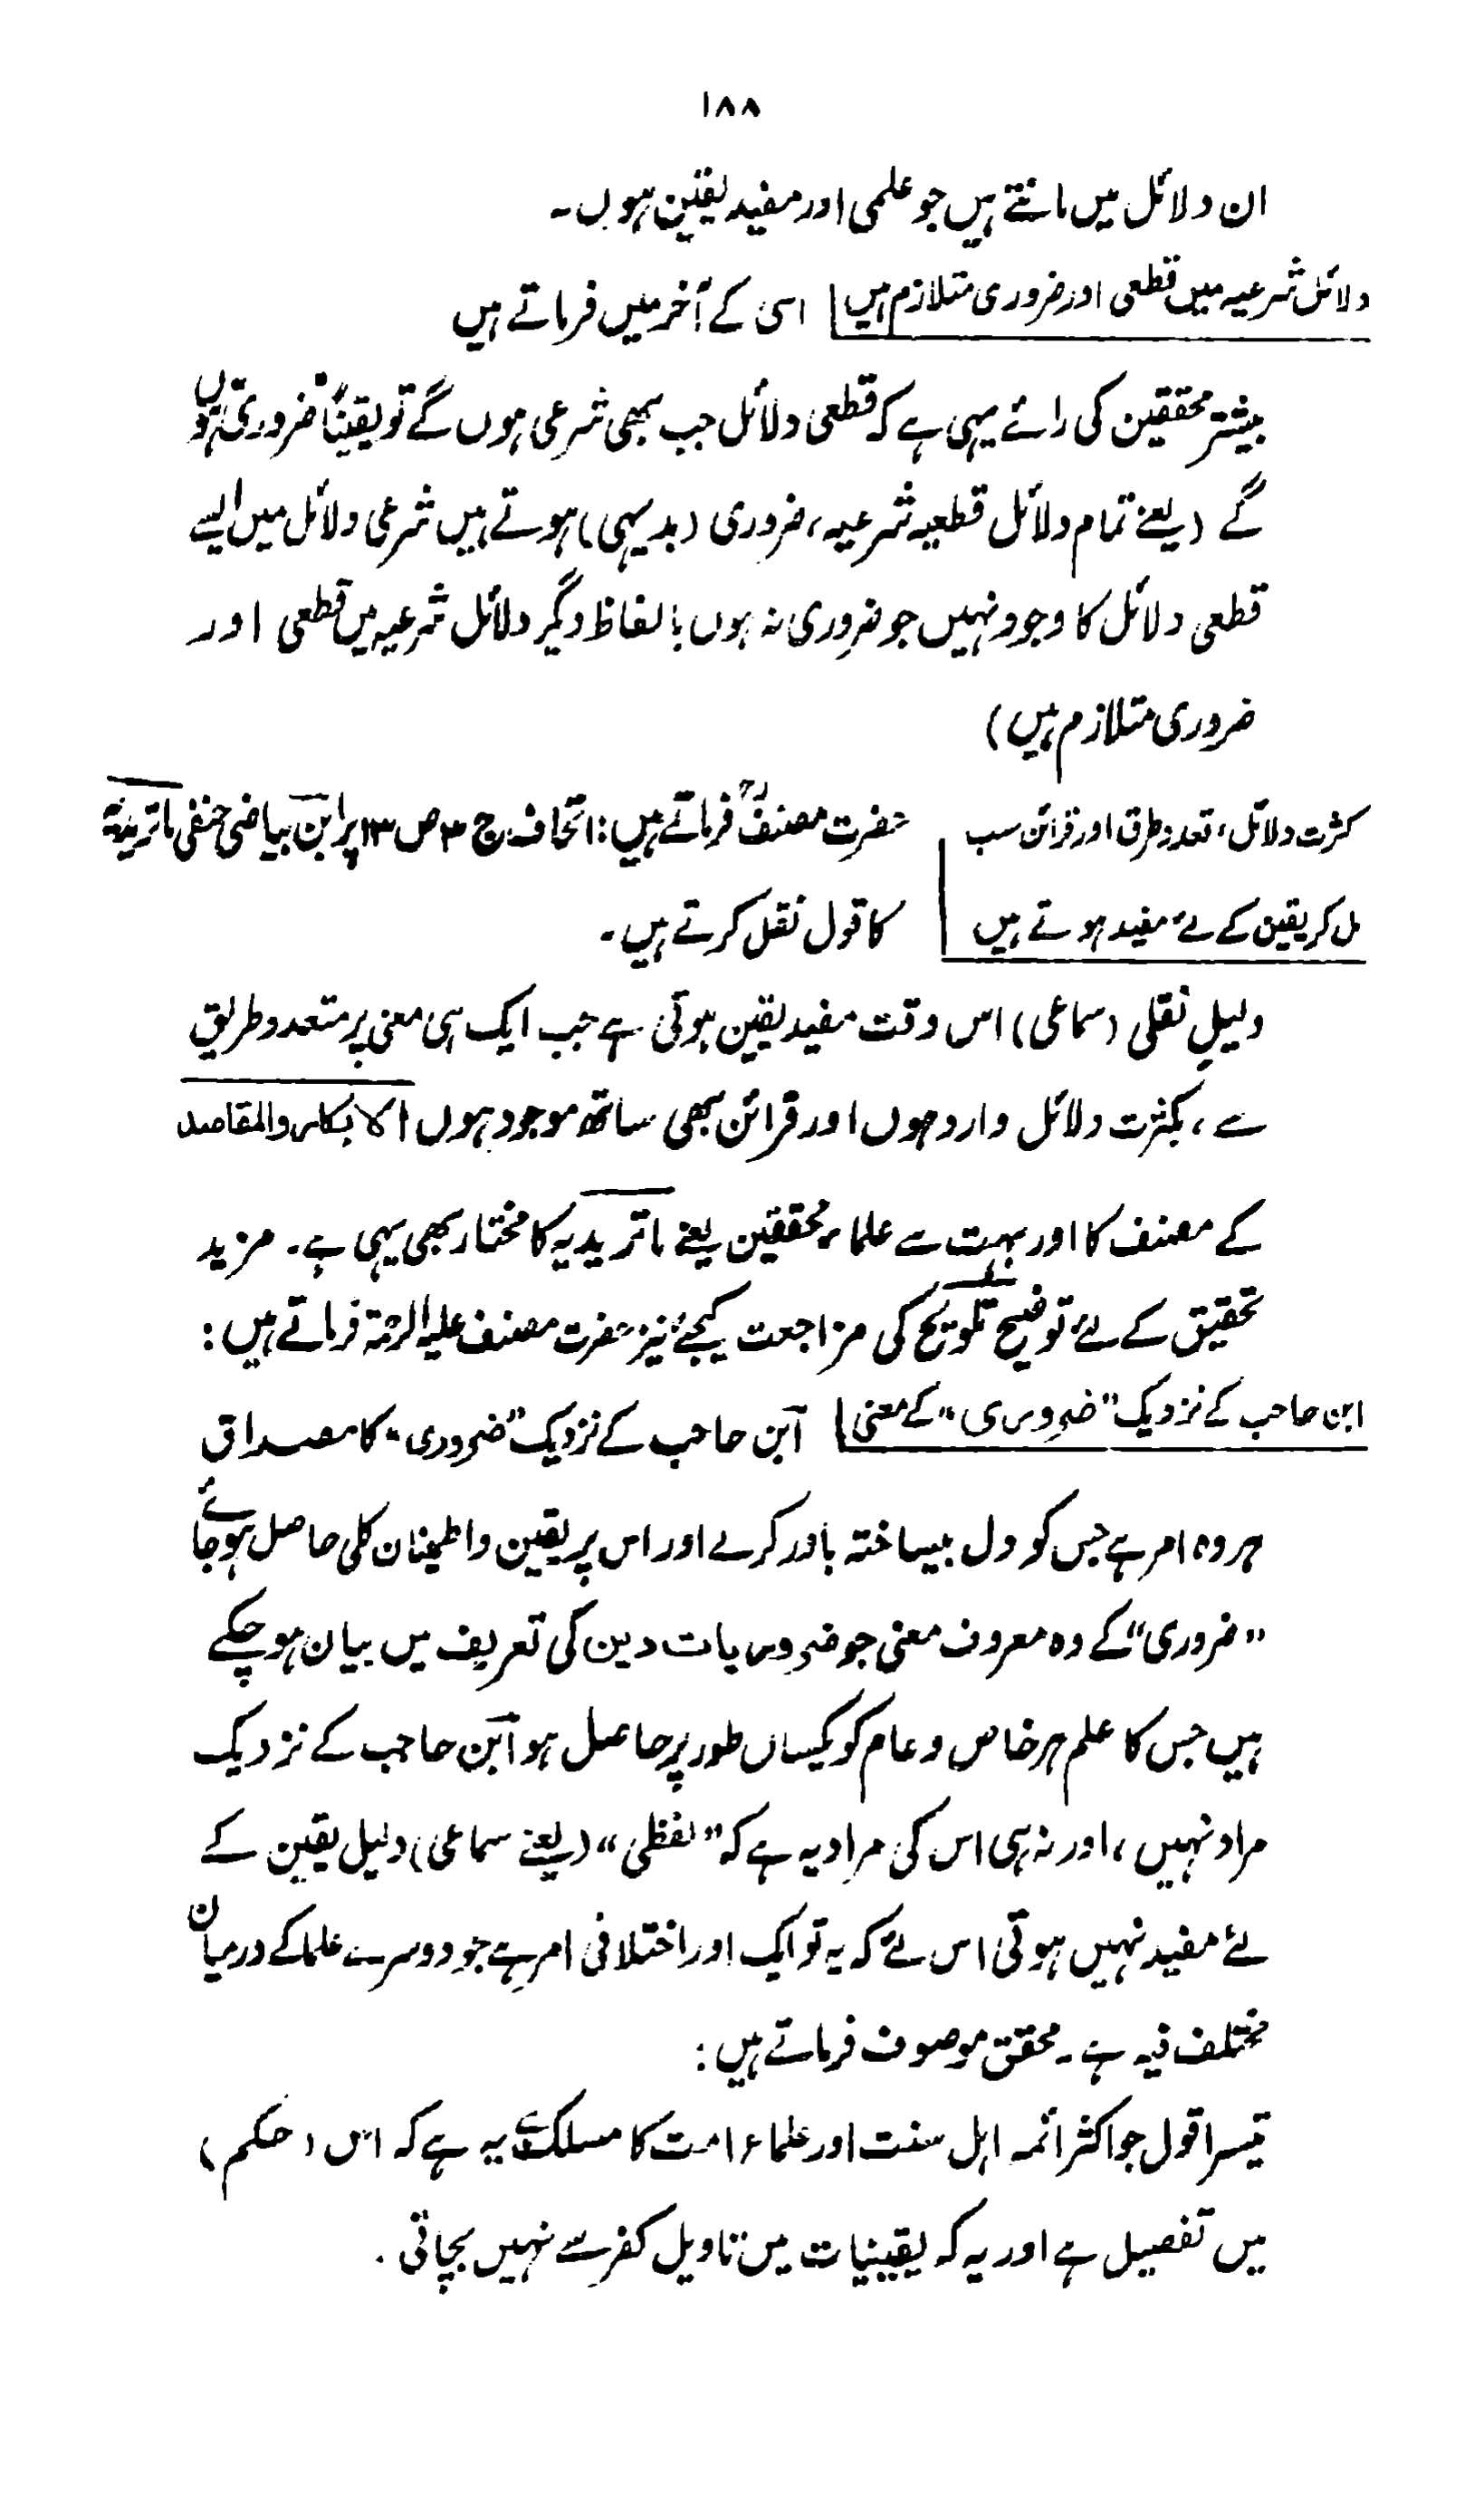 ۱۸۸
ان دلائل میں مانتے ہیں جو علمی اور مفید یقین ہوں۔
دلائل شرعیہ میں قطعی اور ضروری متلازم ہیں اسی کے آخر میں فرماتے ہیں
بیشتر محققین کی رائے یہی ہے کہ قطعی دلائل جب بھی شرعی ہوں گے تو یقیناً ضروری ہوں
گے (یعنے تمام دلائل قطعیہ شرعیہ، ضروری (بدیہی) ہوتے ہیں شرعی دلائل میں ایسے
قطعی دلائل کا وجود نہیں جو ضروری نہ ہوں بالفاظ دیگر دلائل شرعیہ میں قطعی اور
ضروری متلازم ہیں)
کثرت دلائل، تعدد طرق اور قرائن سب حضرت مصنفؒ فرماتے ہیں: اتحاف ج ۳ ص ۱۳ پر ابن بیاضی حنفی ماتریدیؒ
مل کر یقین کے لئے مفید ہوتے ہیں کا قول نقل کرتے ہیں۔
دلیلِ نقلی (سماعی) اس وقت مفید یقین ہوتی ہے جب ایک ہی معنی پر متعدد طریق
سے، بکثرت دلائل وارد ہوں اور قرائن بھی ساتھ موجود ہوں الابکار والمقاصد
کے مصنف کا اور بہت سے علماء محققین یعنے ماتریدیہ کا مختار بھی یہی ہے۔ مزید
تحقیق کے لئے توضیح تلویح کی مراجعت کیجئے نیز حضرت مصنف علیہ الرحمۃ فرماتے ہیں:
ابن حاجب کے نزدیک "ضروری" کے معنی ابن حاجب کے نزدیک "ضروری" کا مصداق
ہر وہ امر ہے جس کو دل بیساختہ باور کرلے اور اس پر یقین و اطمینان کلی حاصل ہو جائے
"ضروری" کے وہ معروف معنی جو ضروریات دین کی تعریف میں بیان ہو چکے
ہیں جس کا علم ہر خاص و عام کو یکساں طور پر حاصل ہو ابن حاجب کے نزدیک
مراد نہیں، اور نہ ہی اس کی مراد یہ ہے کہ "لفظی" (یعنے سماعی) دلیل یقین کے
لئے مفید نہیں ہوتی اس لئے کہ یہ تو ایک اور اختلافی امر ہے جو دوسرے علما کے درمیان
مختلف فیہ ہے۔ محقق موصوف فرماتے ہیں:
تیسرا قول جو اکثر ائمہ اہل سنت اور علماء امت کا مسلک ہے یہ ہے کہ اس (حکم)
میں تفصیل ہے اور یہ کہ یقینیات میں تاویل کفر سے نہیں بچاتی۔